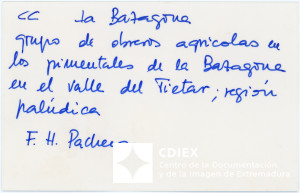 CC La Bazagona
grupo de obreros agricolas en
los pimentales de la Bazagona
en el valle del Tietar; región
palúdica
F. H. Pacheco
CDIEX
Centro de la Documentación
y de la Imagen de Extremadura